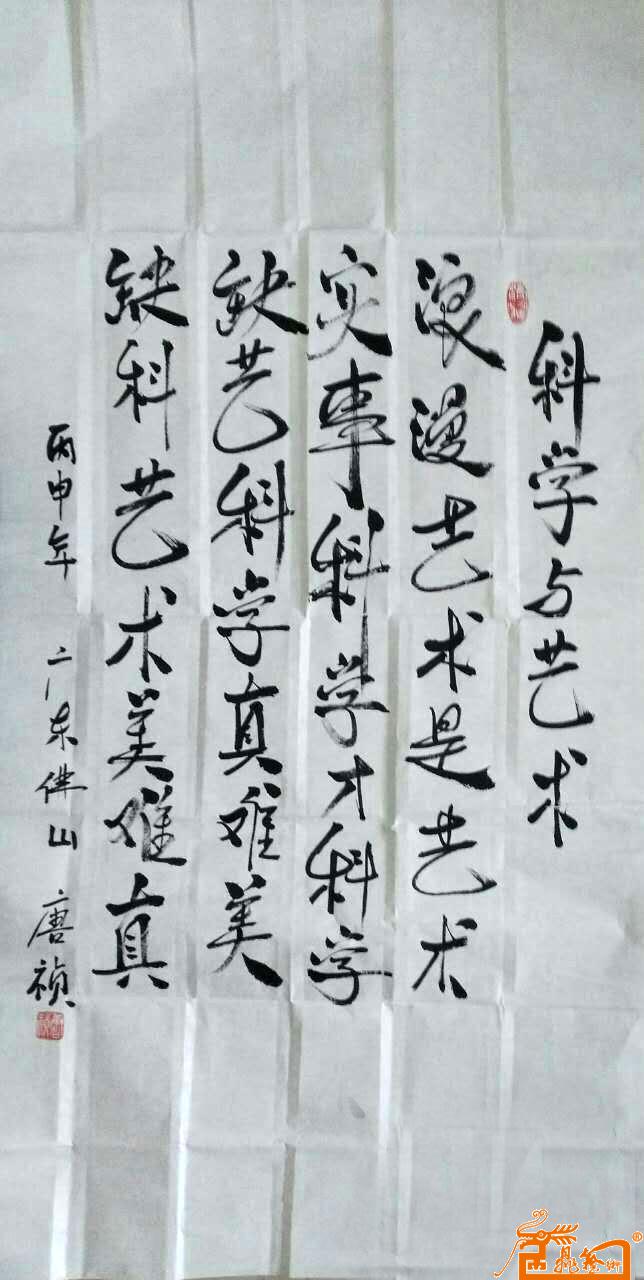 科学与艺术
浪漫艺术是艺术
实事科学才科学
缺艺科学真难美
缺科艺术美难真
丙申年 广东佛山 唐祯